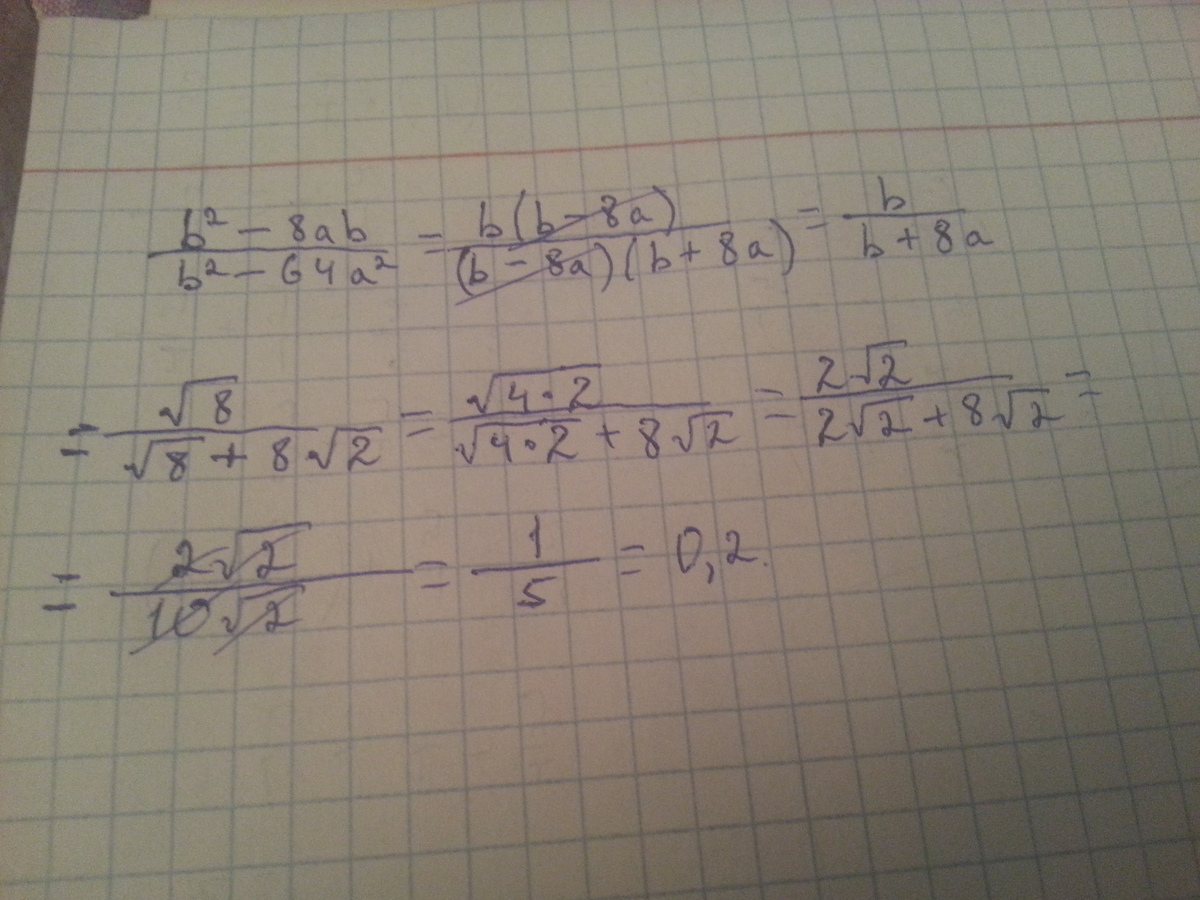 (b² − 8ab)/(b² − 64a²) = b(b − 8a)/((b − 8a)(b + 8a)) = b/(b + 8a)
= √8/(√8 + 8√2) = √(4·2)/(√(4·2) + 8√2) = 2√2/(2√2 + 8√2) =
= 2√2/(10√2) = 1/5 = 0,2.